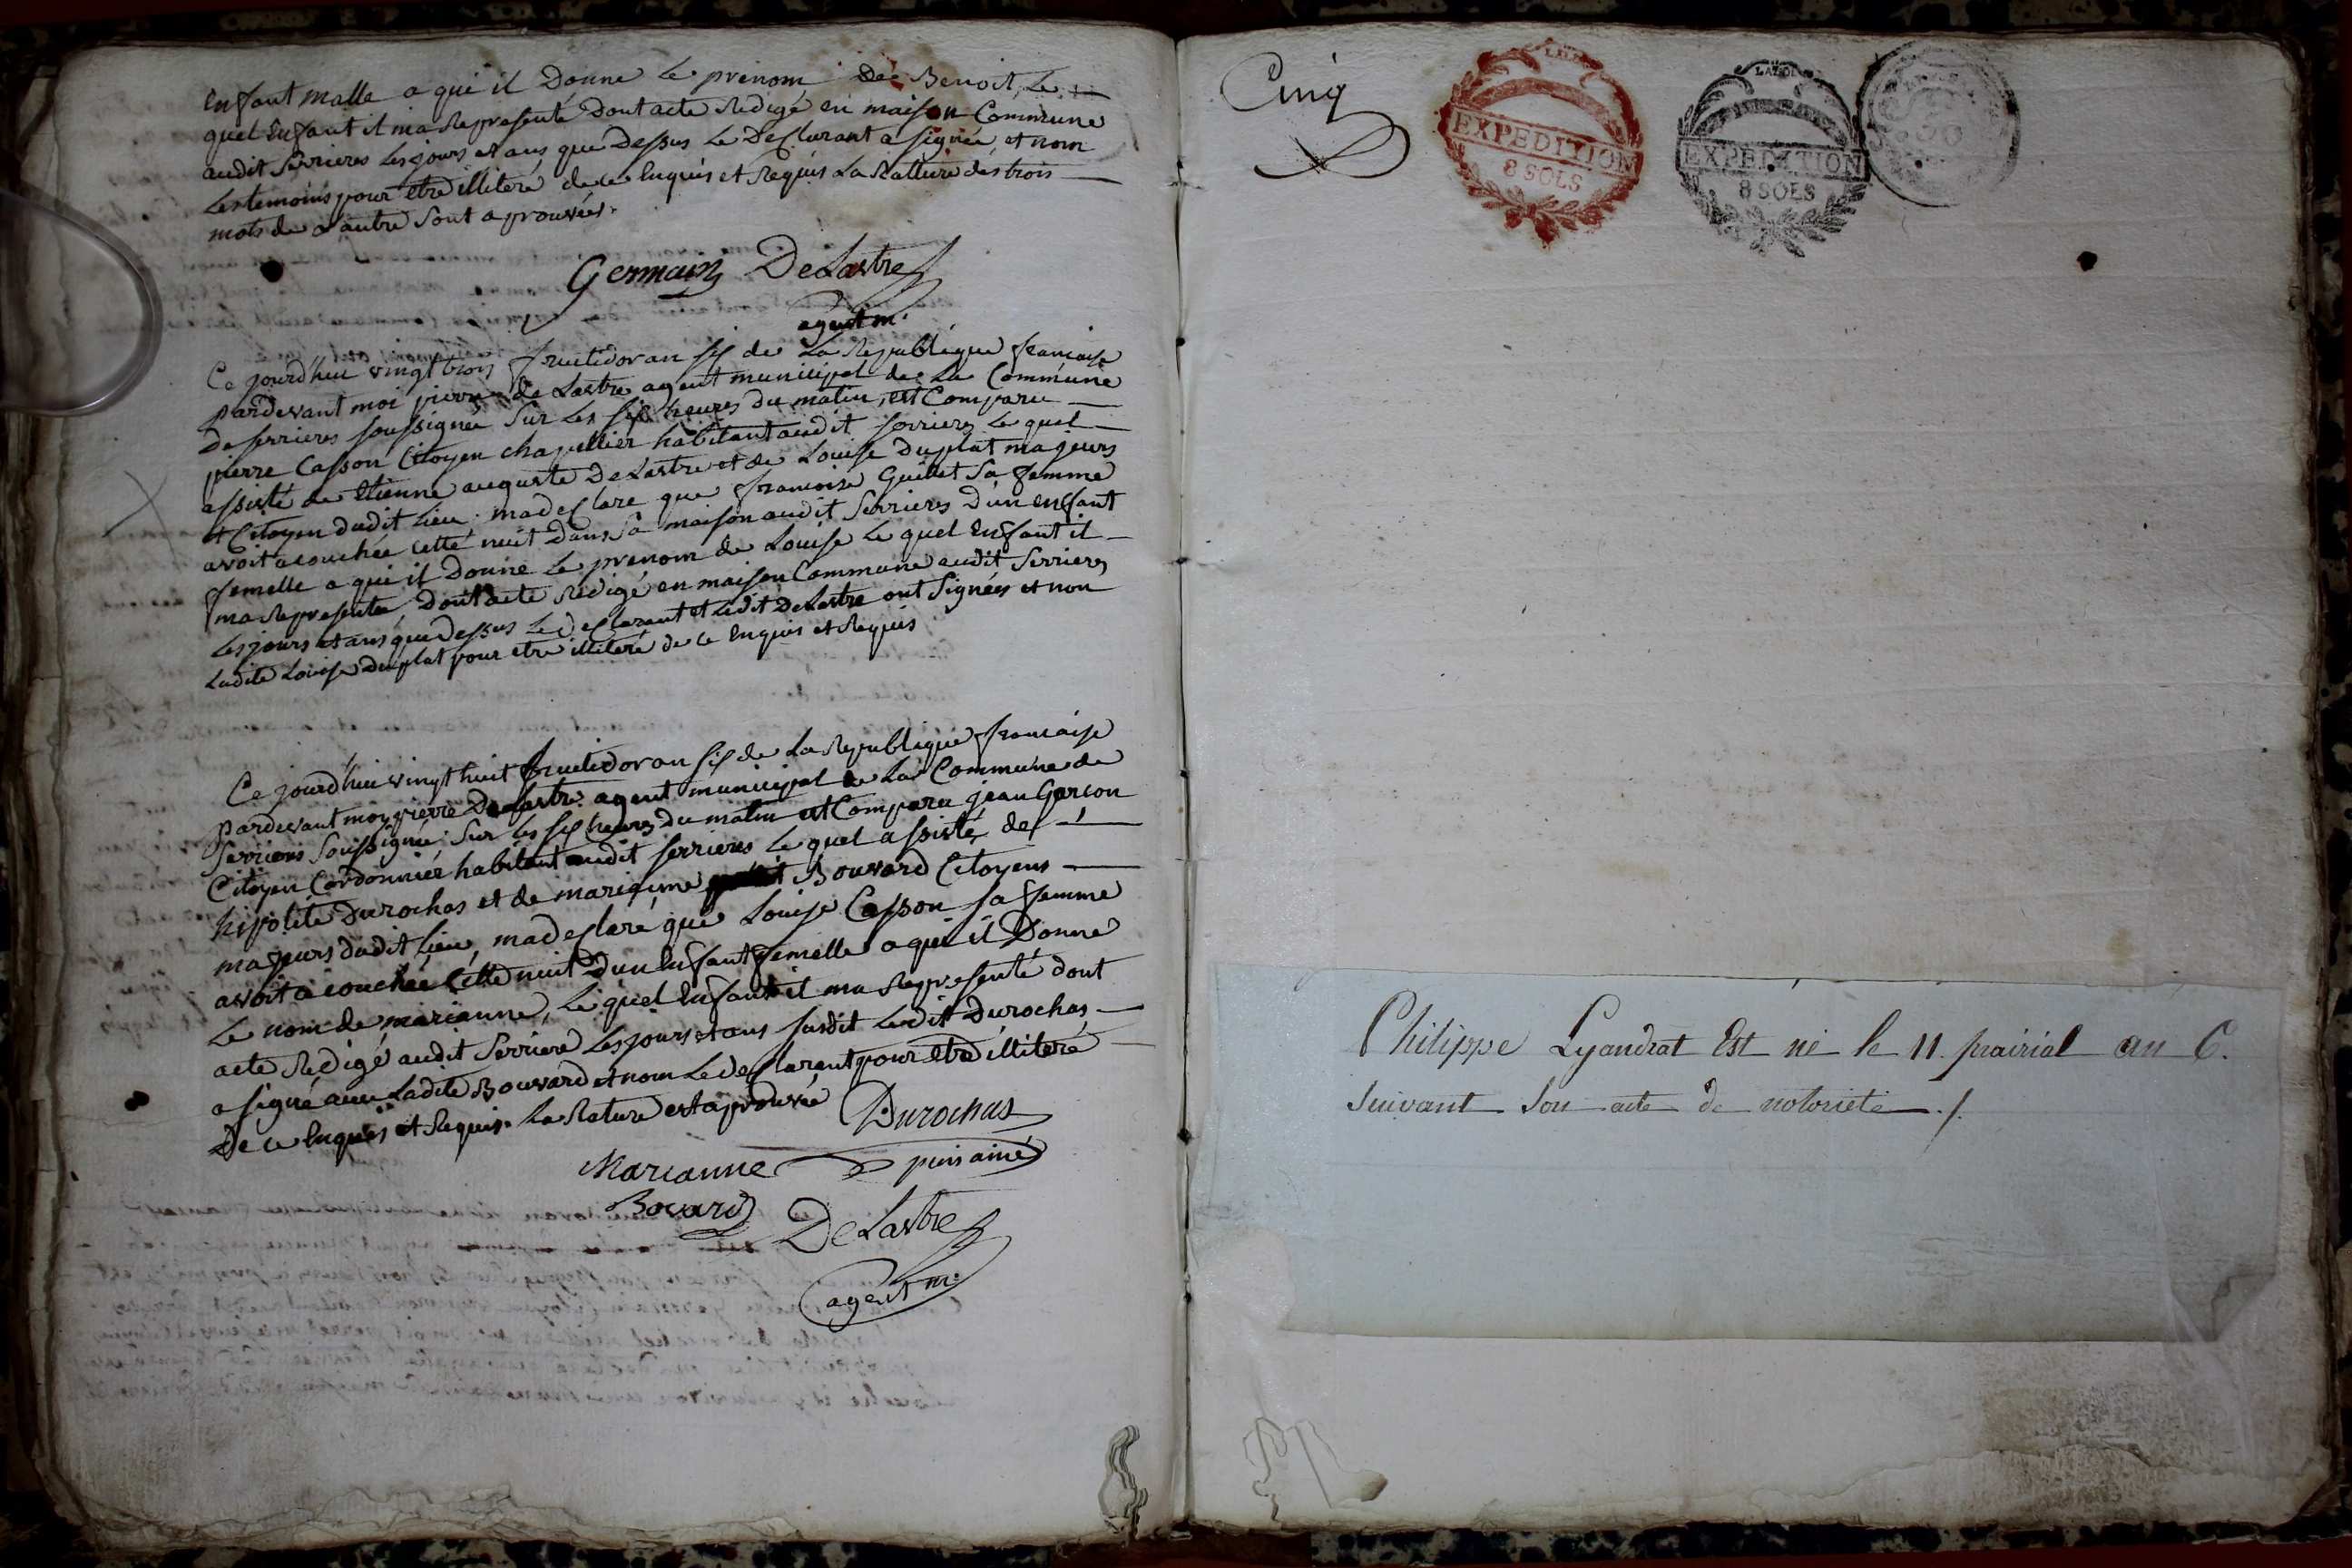 Enfant malle a qui il Donne Le prenom de Benoit, Le
quel Enfant il ma Representé Dont acte Redigé en maison Commune
audit Serrieres Les jours et ans que Dessus Le Desclarant a signée, et nom
Les temoins pour etre illiteré de ce Enquis et Requis La Ratture des trois
mots de a autre Sont aprouvées.
Germain DeLastre
agent m.
Ce jourd'hui vingt trois fructidor an six de La Republique francaise
pardevant moi pierre de Lastre agent municipal de La Commune
de serrieres soussignée Sur Les six heures du matin, est Comparu
pierre Casson Citoyen chapellier habitant audit serrieres Le quel
assisté de Etienne auguste DeLastre et de Louise Duplat majeurs
et Citoyen dudit Lieu. ma desclare que francoise Guillet Sa femme
avoit acouchée cette nuit Dans Sa maison audit Serrieres D'un enfant
femelle a qui il Donne Le prenom de Louise Le quel Enfant il
ma Representée, Dont acte Redigé en maison Commune audit Serrieres
Les jours et ans que Dessus Le Desclarant et Ledit DeLastre ont Signées et non
Ladite Louise Duplat pour etre illiteré de ce Enquis et Requis
Ce jourd'hui vingt huit fructidor an six de La Republique francaise
pardevant moy pierre DeLastre agent municipal de La Commune de
Serrieres Soussignée Sur les six heures du matin est Comparu jean Garcon
Citoyen Cordonnier habitant audit serrieres Le quel assisté de
hipolite Durochas et de marianne Bouvard Citoyens
majeurs dudit Lieu, ma desclaré que Louise Casson sa femme
avoit acouchée Cette nuit D'un Enfant femelle a qui il Donne
Le nom de marianne, Le quel Enfant il ma Representé dont
acte Redigé audit Serriere Les jours et ans susdit Ledit Durochas
a signé avec Ladite Bouvard et nom Le desclarant pour Etre illiteré
De ce Enquis et Requis. La Rature est aprouvée
Durochas
Marianne
Bovard
DeLastre
agent m.
Cinq
EXPEDITION
8 SOLS
EXPEDITION
8 SOLS
Philippe Lyandrat Est né le 11 prairial an 6.
Suivant Son acte de notorieté ./.